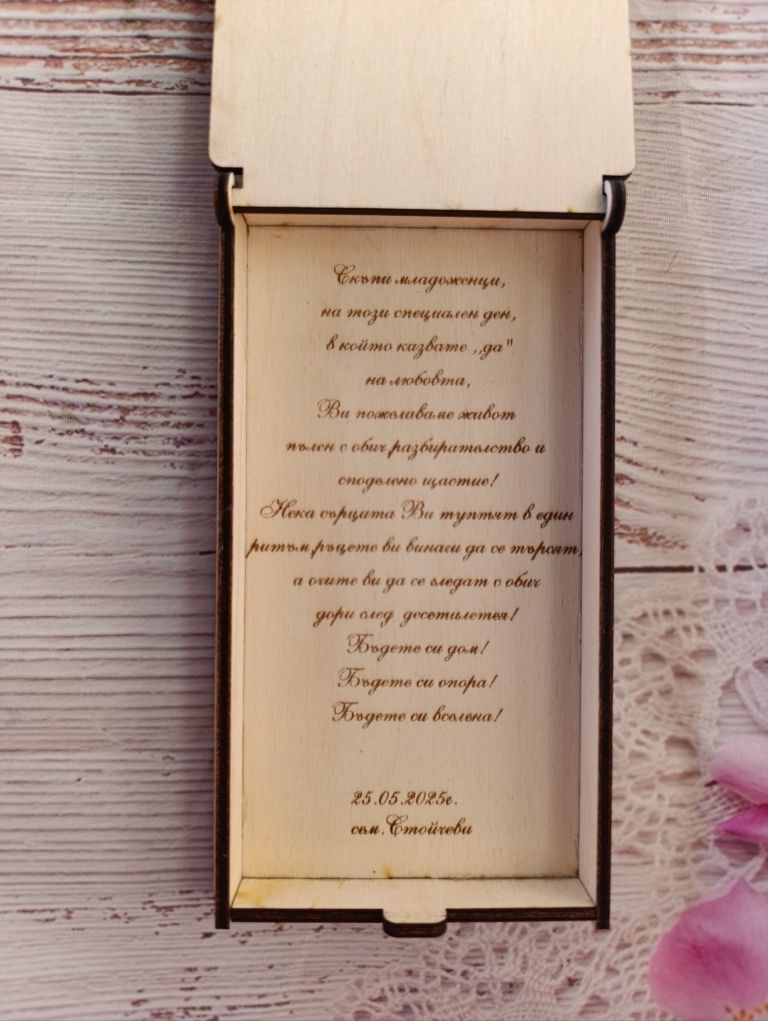 Скъпи младоженци,
на този специален ден,
в който казвате ,,да"
на любовта,
Ви пожелаваме живот
пълен с обич,разбирателство и
споделено щастие!
Нека сърцата Ви туптят в един
ритъм,ръцете ви винаги да се търсят,
а очите ви да се гледат с обич
дори след десетилетея!
Бъдете си дом!
Бъдете си опора!
Бъдете си вселена!
25.05.2025г.
сем.Стойчеви